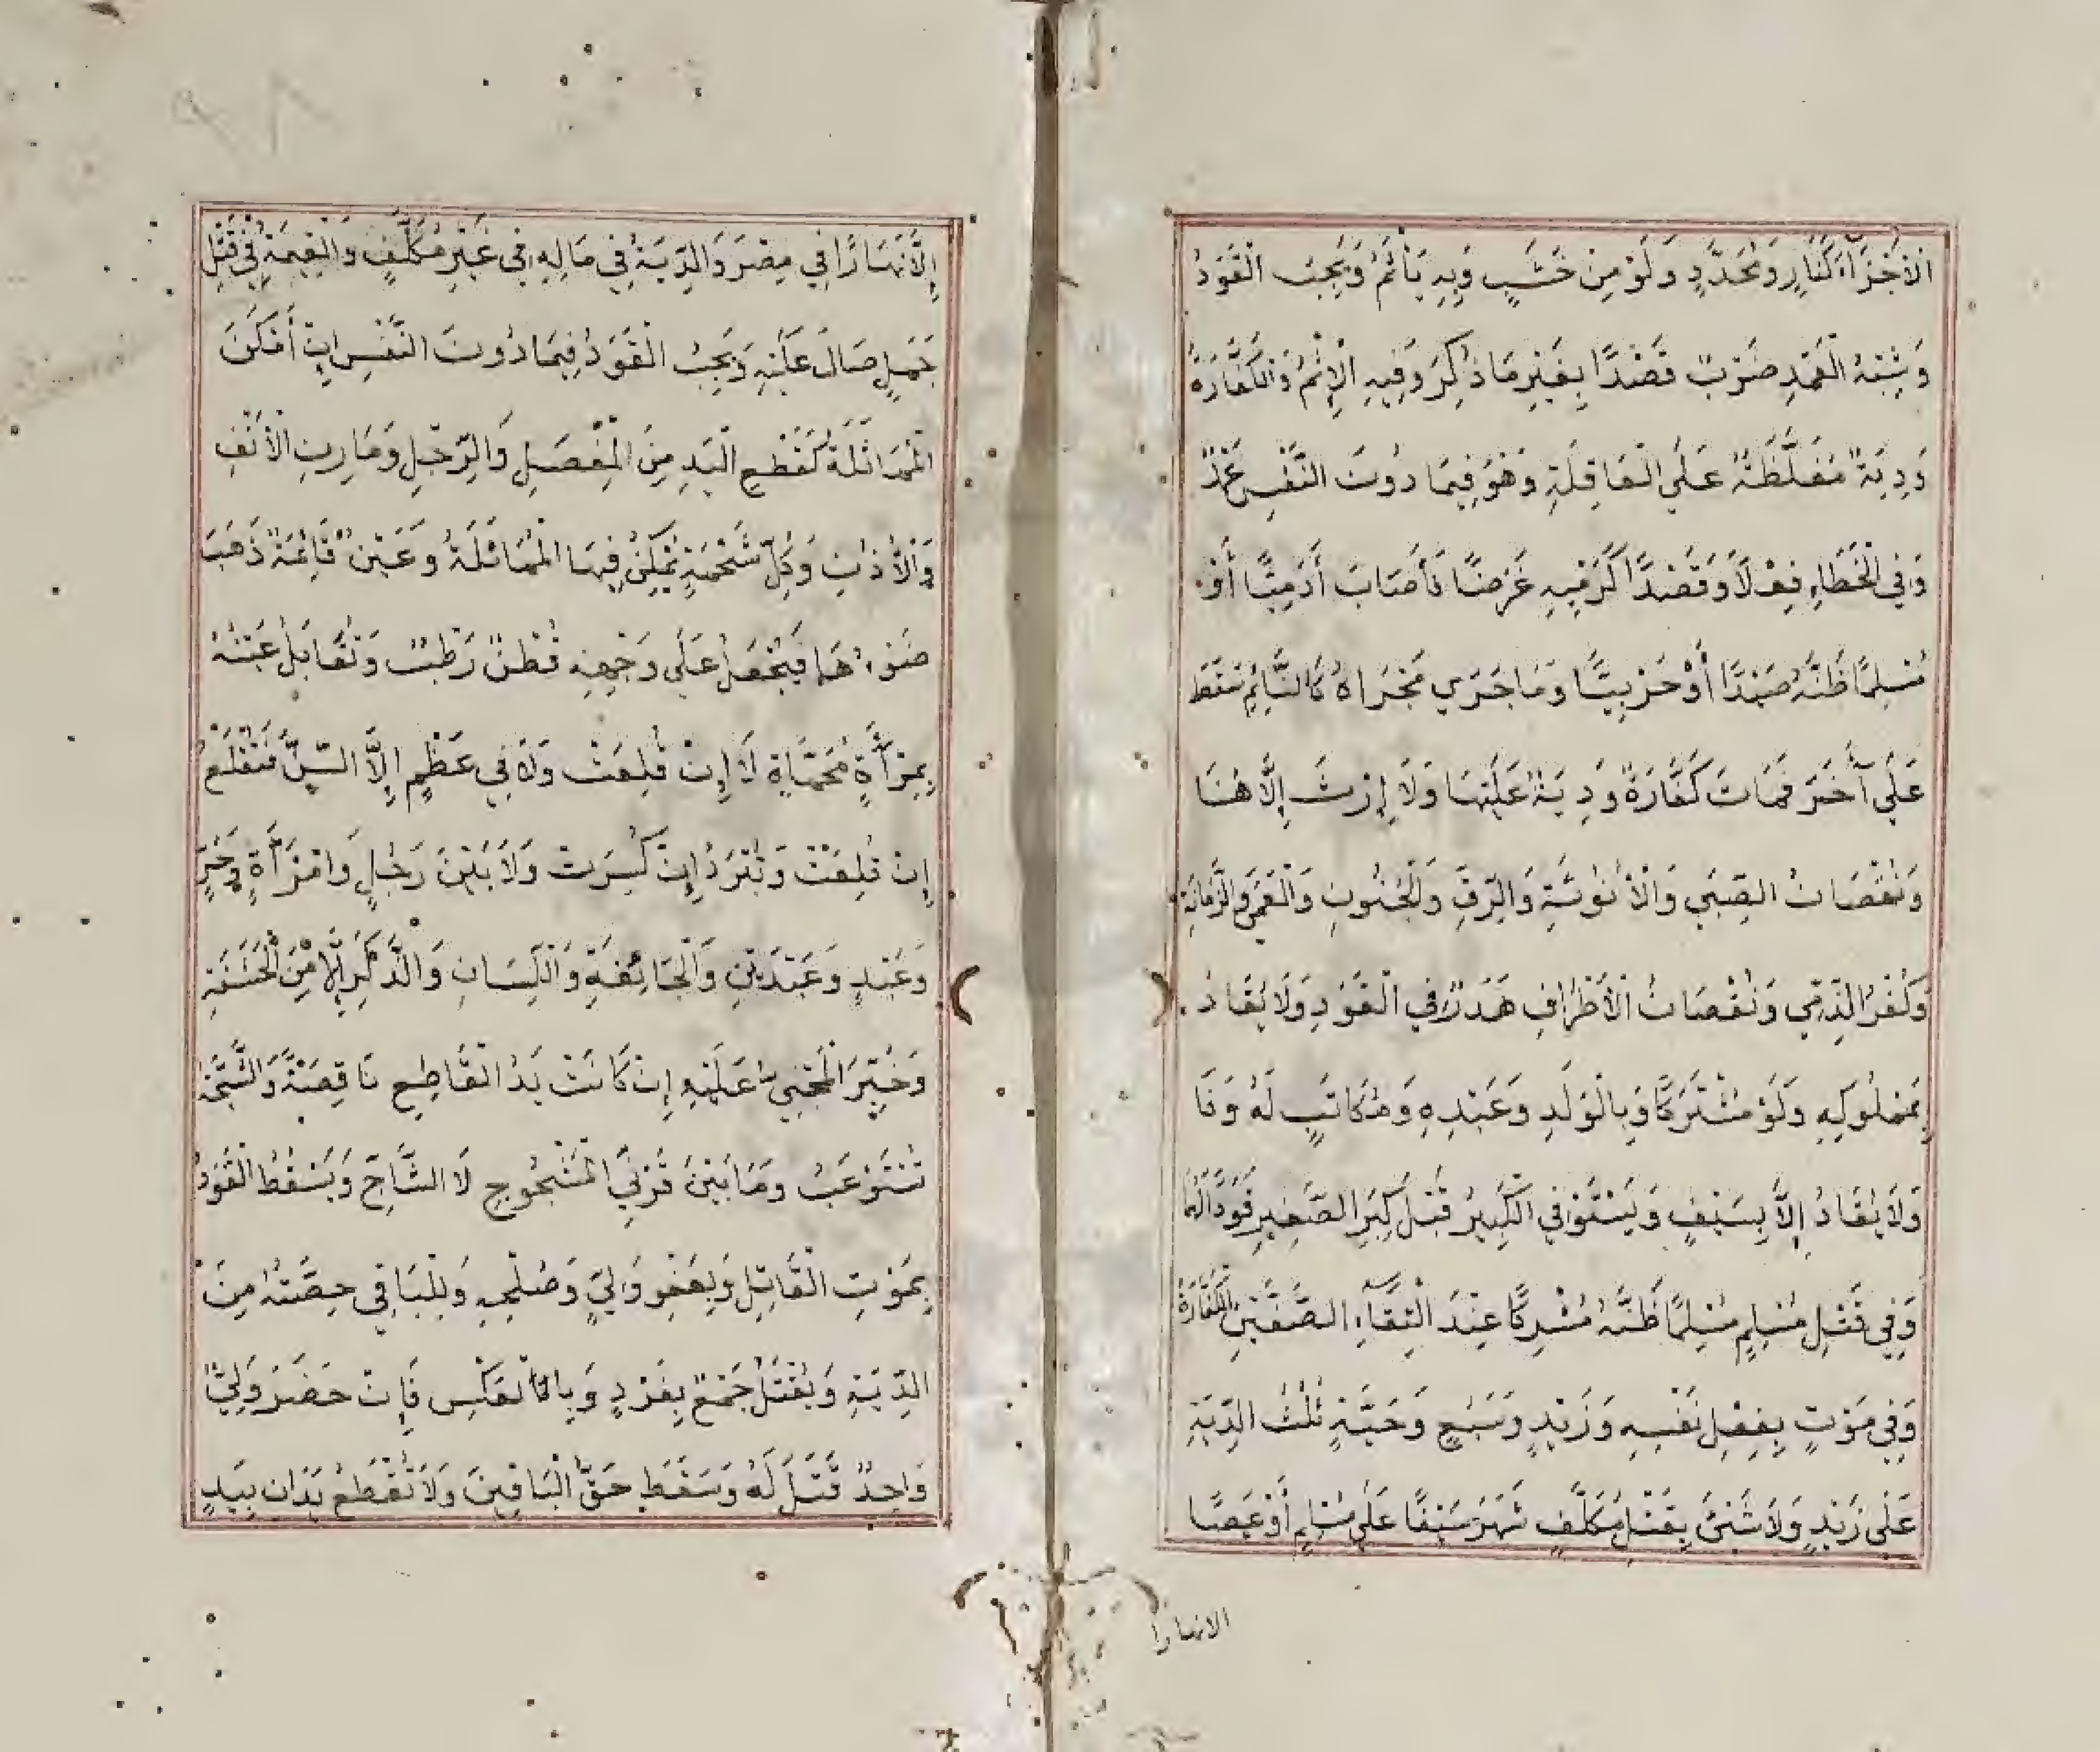 الْأَجْزَآءَ كَنَارٍ وَمُحَدَّدٍ وَلَوْ مِنْ خَشَبٍ وَبِهِ يَأْثَمُ وَيَجِبُ الْقَوَدُ
وَشِبْهُ الْعَمْدِ ضَرْبٌ قَصْدًا بِغَيْرِ مَا ذُكِرَ وَفِيهِ الْإِثْمُ وَالْكَفَّارَةُ
وَدِيَةٌ مُغَلَّظَةٌ عَلَى الْعَاقِلَةِ وَهُوَ فِيمَا دُونَ النَّفْسِ عَمْدٌ
وَفِي الْخَطَاءِ فِعْلًا وَقَصْدًا كَرَمْيِهِ غَرَضًا فَأَصَابَ أَدَمِيًّا أَوْ
مُسْلِمًا ظَنَّهُ صَيْدًا أَوْ حَرْبِيًّا وَمَا جَرَي مَجْرَاهُ كَالنَّائِمِ سَقَطَ
عَلَى آخَرَ فَمَاتَ كَفَّارَةٌ وَدِيَةٌ عَلَيْهَا وَلَا إِرْثَ إِلَّا هُنَا
وَنُقْصَانُ الصِّبَي وَالْأُنُوثَةِ وَالرِّقِ وَالْجُنُونِ وَالْعَمَى وَالزَّمَانَةِ
وَكُفْرُ الذِّمِّي وَنُقْصَانُ الْأَطْرَافِ هَدَرٌ فِي الْقَوَدِ وَلَا يُقَادُ
بِمَمْلُوكِهِ وَلَوْ مُشْتَرَكًا وَبِالْوَلَدِ وَعَبْدِهِ وَمُكَاتَبٍ لَهُ وَفَا
وَلَا يُقَادُ إِلَّا بِسَيْفٍ وَيَسْتَوْفِي الْكَبِيرُ قَبْلَ كِبَرِ الصَّغِيرِ قَوَدًا لَهُمَا
وَفِي قَتْلِ مُسْلِمٍ مُسْلِمًا ظَنَّهُ مُشْرِكًا عِنْدَ الْتِقَآءِ الصَّفَّيْنِ الْكَفَّارَةُ
وَفِي مَوْتٍ بِفِعْلِ نَفْسِهِ وَزَيْدٍ وَسَبُعٍ وَحَيَّةٍ ثُلُثُ الدِّيَةِ
عَلَى زَيْدٍ وَلَا شَيْئَ بِقَتْلِ مُكَلَّفٍ شَهَرَ سَيْفًا عَلَى مُسْلِمٍ أَوْ عَصًا
الانهارا
إِلَّا نَهَارًا فِي مِصْرَ وَالدِّيَةُ فِي مَالِهِ فِي غَيْرِ مُكَلَّفٍ وَالْقِيمَةُ فِي قَتْلِ
جَمَلٍ صَالَ عَلَيْهِ وَيَجِبُ الْقَوَدُ فِيمَا دُونَ النَّفْسِ إِنْ أَمْكَنَ
الْمُمَاثَلَةُ كَقَطْعِ الْيَدِ مِنَ الْمِفْصَلِ وَالرِّجْلِ وَمَارِنِ الْأَنْفِ
وَالْأُذُنِ وَكُلِّ شَحْمَةٍ يُمْكِنُ فِيهَا الْمُمَاثَلَةُ وَعَيْنٍ قَائِمَةٍ ذَهَبَ
ضَوْءُهَا فَيُجْعَلُ عَلَى وَجْهِهِ قُطْنٌ رَطْبٌ وَتُقَابَلُ عَيْنُهُ
بِمِرْأَةٍ مُحَمَّاةٍ لَا إِنْ قُلِعَتْ وَلَا فِي عَظْمٍ إِلَّا السِّنَّ فَتُقْلَعُ
إِنْ قُلِعَتْ وَتُبْرَدُ إِنْ كُسِرَتْ وَلَا بَيْنَ رَجُلٍ وَامْرَأَةٍ وَحُرٍّ
وَعَبْدٍ وَعَبْدَيْنِ وَالْجَائِفَةِ وَاللِّسَانِ وَالذَّكَرِ إِلَّا مِنَ الْحَشَفَةِ
وَخُيِّرَ الْمَجْنِي عَلَيْهِ إِنْ كَانَتْ يَدُ الْقَاطِعِ نَاقِصَةً وَالشَّجَّةُ
تَسْتَوْعِبُ وَمَا بَيْنَ قَرْنَيِ الْمَشْجُوجِ لَا الشَّاجِّ وَيَسْقُطُ الْقَوَدُ
بِمَوْتِ الْقَاتِلِ وَبِعَفْوِ وَلِيٍّ وَصُلْحِهِ وَلِلْبَاقِي حِصَّتُهُ مِنَ
الدِّيَةِ وَيُقْتَلُ جَمْعٌ بِفَرْدٍ وَبِالْعَكْسِ فَإِنْ حَضَرَ وَلِيٌّ
وَاحِدٌ قَتَلَ لَهُ وَسَقَطَ حَقُّ الْبَاقِينَ وَلَا تُقْطَعُ يَدَانِ بِيَدٍ